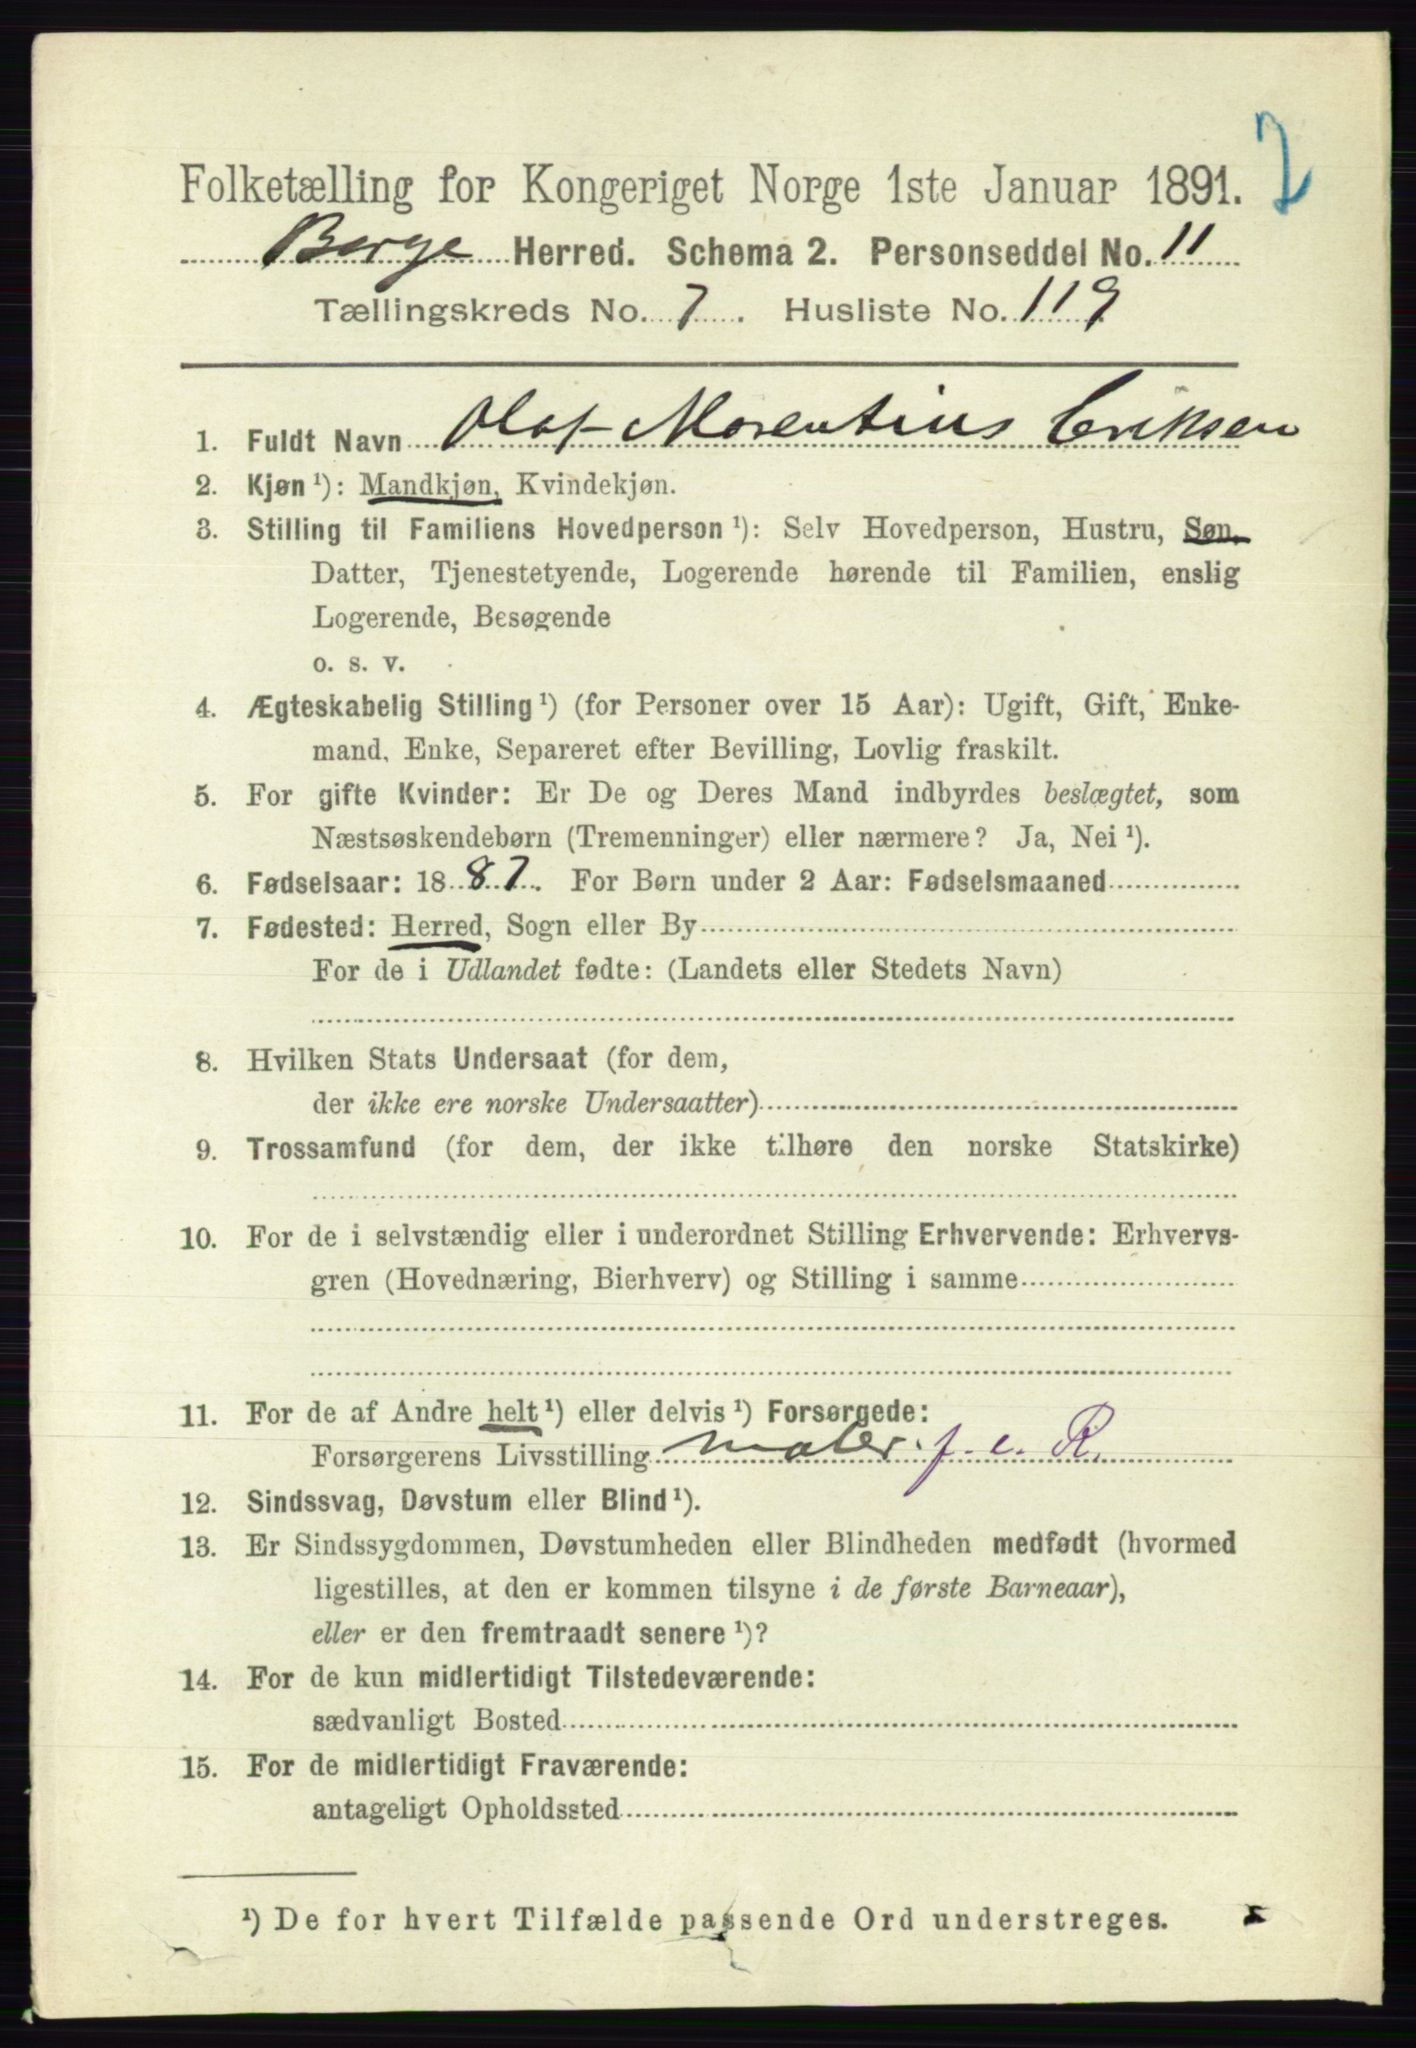 2
Folketælling for Kongeriget Norge 1ste Januar 1891.
Borge Herred. Schema 2. Personseddel No. 11
Tællingskreds No. 7. Husliste No. 119
1. Fuldt Navn Olaf Morentius Eriksen
2. Kjøn ¹): Mandkjøn, Kvindekjøn.
3. Stilling til Familiens Hovedperson ¹): Selv Hovedperson, Hustru, Søn,
Datter, Tjenestetyende, Logerende hørende til Familien, enslig
Logerende, Besøgende
o. s. v.
4. Ægteskabelig Stilling ¹) (for Personer over 15 Aar): Ugift, Gift, Enke-
mand, Enke, Separeret efter Bevilling, Lovlig fraskilt.
5. For gifte Kvinder: Er De og Deres Mand indbyrdes beslægtet, som
Næstsøskendebørn (Tremenninger) eller nærmere? Ja, Nei ¹).
6. Fødselsaar: 1887. For Børn under 2 Aar: Fødselsmaaned
7. Fødested: Herred, Sogn eller By
For de i Udlandet fødte: (Landets eller Stedets Navn)
8. Hvilken Stats Undersaat (for dem,
der ikke ere norske Undersaatter)
9. Trossamfund (for dem, der ikke tilhøre den norske Statskirke)
10. For de i selvstændig eller i underordnet Stilling Erhvervende: Erhvervs-
gren (Hovednæring, Bierhverv) og Stilling i samme
11. For de af Andre helt ¹) eller delvis ¹) Forsørgede:
Forsørgerens Livsstilling maler. f. e. R.
12. Sindssvag, Døvstum eller Blind ¹).
13. Er Sindssygdommen, Døvstumheden eller Blindheden medfødt (hvormed
ligestilles, at den er kommen tilsyne i de første Barneaar),
eller er den fremtraadt senere ¹)?
14. For de kun midlertidigt Tilstedeværende:
sædvanligt Bosted
15. For de midlertidigt Fraværende:
antageligt Opholdssted
¹) De for hvert Tilfælde passende Ord understreges.